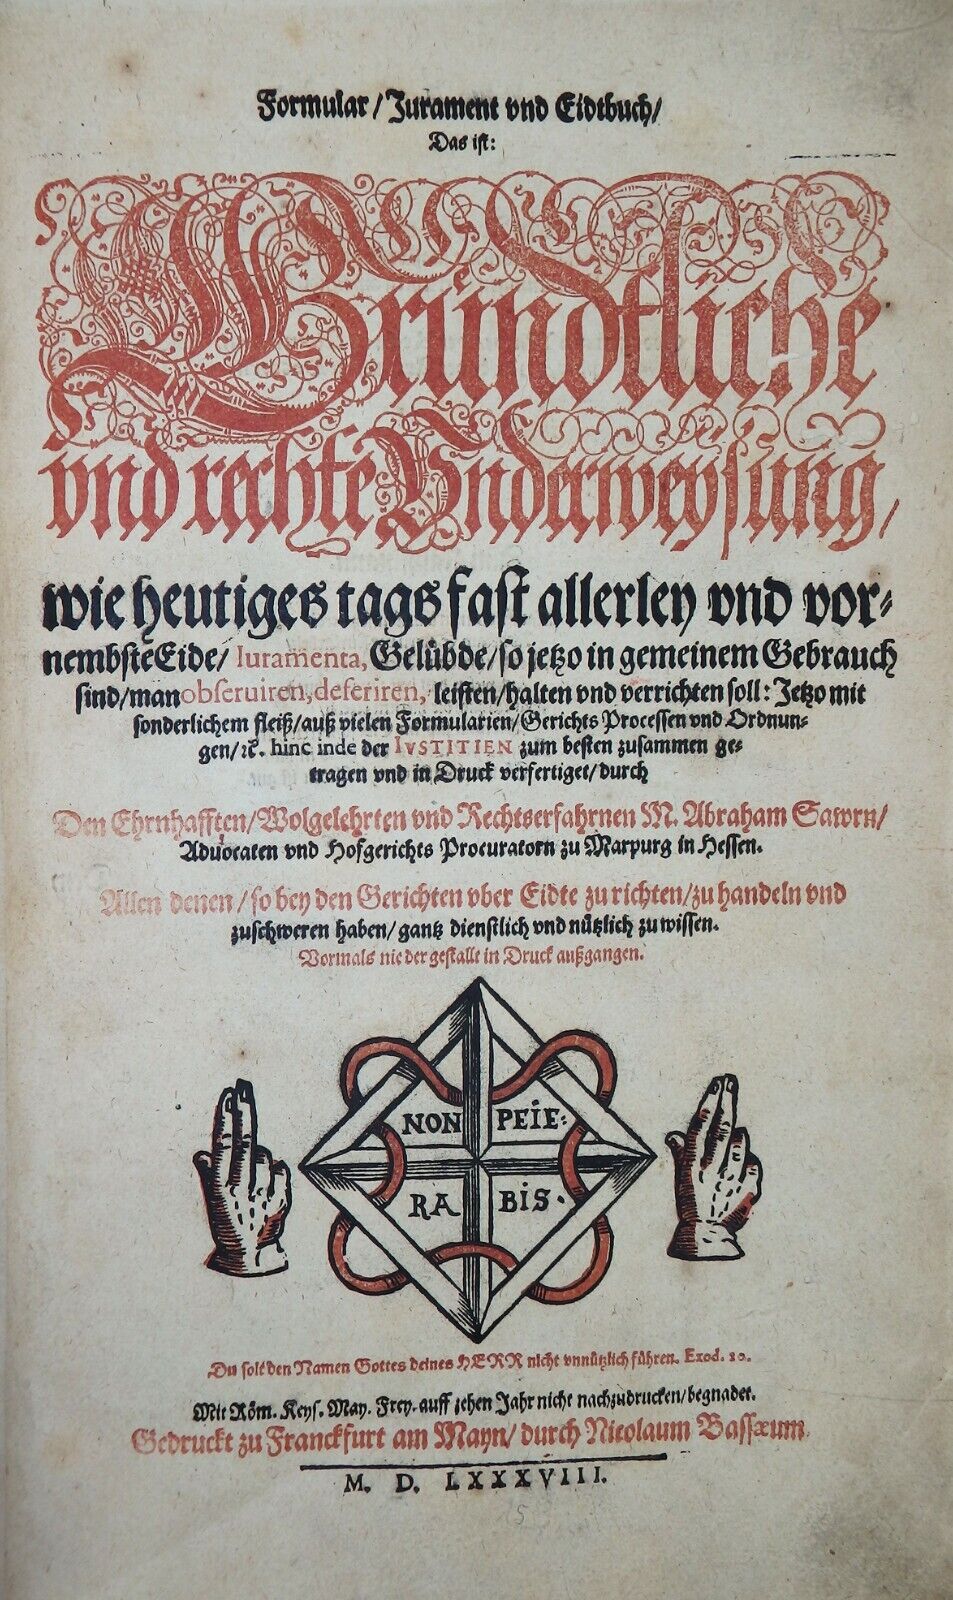 Formular / Jurament vnd Eidtbuch /
Das ist:
Gründtliche
vnd rechte Vnderweysung /
wie heutiges tags fast allerley vnd vor⸗
nembste Eide / Iuramenta, Gelübde / so jetzo in gemeinem Gebrauch
sind / man obseruiren, deferiren, leisten / halten vnd verrichten soll: Jetzo mit
sonderlichem fleiß / auß vielen Formularien / Gerichts Processen vnd Ordnun⸗
gen / ꝛc. hinc inde der IVSTITIEN zum besten zusammen ge⸗
tragen vnd in Druck verfertiget / durch
Den Ehrnhafften / Wolgelehrten vnd Rechtserfahrnen M. Abraham Sawrn /
Aduocaten vnd Hofgerichts Procuratorn zu Marpurg in Hessen.
Allen denen / so bey den Gerichten vber Eidte zu richten / zu handeln vnd
zuschweren haben / gantz dienstlich vnd nützlich zu wissen.
Vormals nie der gestalt in Druck außgangen.
NON PEIE:
RA BIS.
Du solt den Namen Gottes deines HERR nicht vnnützlich führen. Exod. 20.
Mit Röm. Keys. May. Frey. auff zehen Jahr nicht nachzudrucken / begnadet.
Gedruckt zu Franckfurt am Mayn / durch Nicolaum Bassæum.
M. D. LXXXVIII.